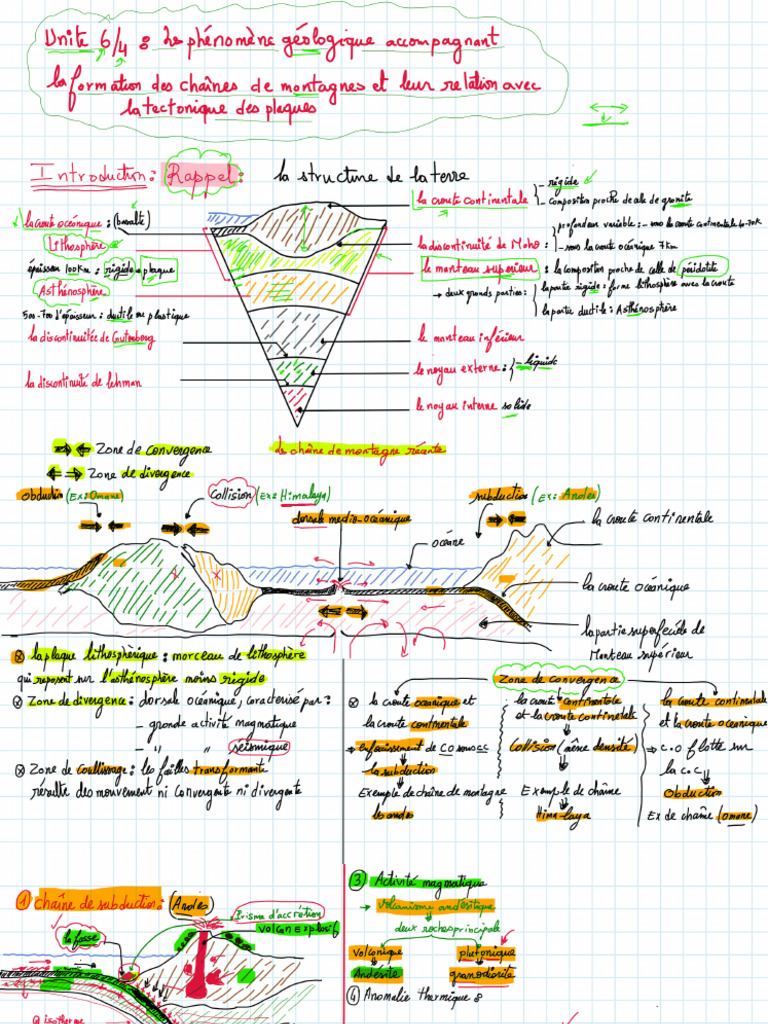 Unité 6/4 : les phénomène géologique accompagnant
la formation des chaînes de montagnes et leur relation avec
la tectonique des plaques
Introduction : Rappel : la structure de la terre
la croute océanique : (basalte)
Lithosphère
épaisseur 100Km : rigide = plaque
Asthénosphère
500-700 d'épaisseur : ductile ou plastique
la discontinuitée de Gutenberg
la discontinuité de lehman
la croute continentale
- rigide
- composition proche de celle de granite
la discontinuité de Moho :
profondeur variable : - sous la croute continentale 60-70K
- sous la croute océanique 7km
le manteau supérieur : la composition proche de celle de péridotite
→ deux grands parties :
la partie rigide : forme lithosphère avec la croute
la partie ductile : Asthénosphère
le manteau inférieur
le noyau externe : - liquide
le noyau interne solide
Zone de convergence
Zone de divergence
de chaîne de montagne récente
Obduction (Ex : Omane)
Collision (Ex : Himalaya)
dorsale medio-océanique
subduction (Ex : Andes)
océane
la croute continentale
la croute océanique
la partie superfecièle de
Monteau supérieur
la plaque lithosphèrique : morceau de lithosphère
qui reposent sur l'asthénosphère moins rigide
Zone de divergence : dorsale océanique, caractérisé par :
- grande activité magmatique
- " " séismique
Zone de coulissage : les failles transformante
résulte des mouvement ni convergente ni divergente
Zone de convergence
la croute oceanique et
la croute continentale
⇒ enfouissement de CO sous cc
la subduction
Exemple de chaîne de montagne
les andes
la croute continentale
et la croute continetale
Collision (même densité)
Exemple de chaîne
Himalaya
la croute continentale
et la croute océanique
⇒ c.o flotte sur
la c.c
Obduction
Ex de chaîne (omane)
① chaîne de subduction : (Andes)
Prisme d'accrétion
volcan Explosif
la fosse
isotherme
③ Activité magmatique
→ volcanisme andésitique
deux roches principale
Volconique
Andésite
plutonique
granodiorite
④ Anomalie thermique :